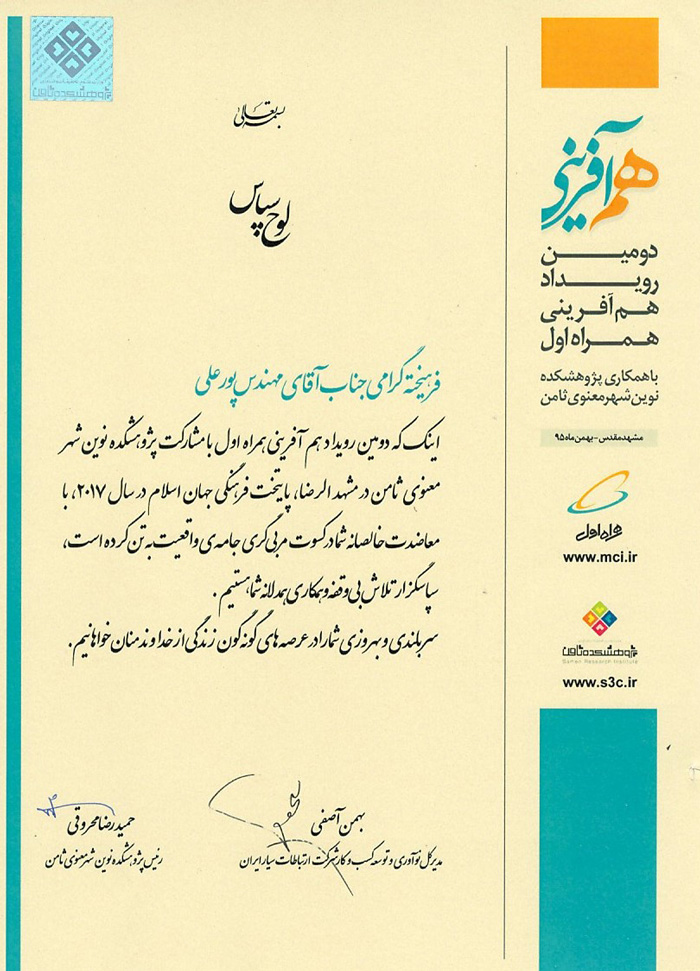 بسمه تعالی
لوح سپاس
فرهیخته گرامی جناب آقای مهندس پورعلی
اینک که دومین رویداد هم آفرینی همراه اول با مشارکت پژوهشکده نوین شهر
معنوی ثامن در مشهد الرضا، پایتخت فرهنگی جهان اسلام در سال ۲۰۱۷، با
معاضدت خالصانه شما در کسوت مربی گری جامه ی واقعیت به تن کرده است،
سپاسگزار تلاش بی وقفه و همکاری همدلانه شما هستیم .
سربلندی و بهروزی شما را در عرصه های گونه گون زندگی از خداوندمنان خواهانیم .
بهمن آصفی
مدیرکل نوآوری و توسعه کسب و کار شرکت ارتباطات سیار ایران
حمیدرضا محروقی
رئیس پژوهشکده نوین شهر معنوی ثامن
هم آفرینی
دومین
رویداد
هم آفرینی
همراه اول
با همکاری پژوهشکده
نوین شهر معنوی ثامن
مشهد مقدس - بهمن ماه ۹۵
همراه اول
www.mci.ir
پژوهشکده ثامن
Samen Research Institute
www.s3c.ir
پژوهشکده ثامن